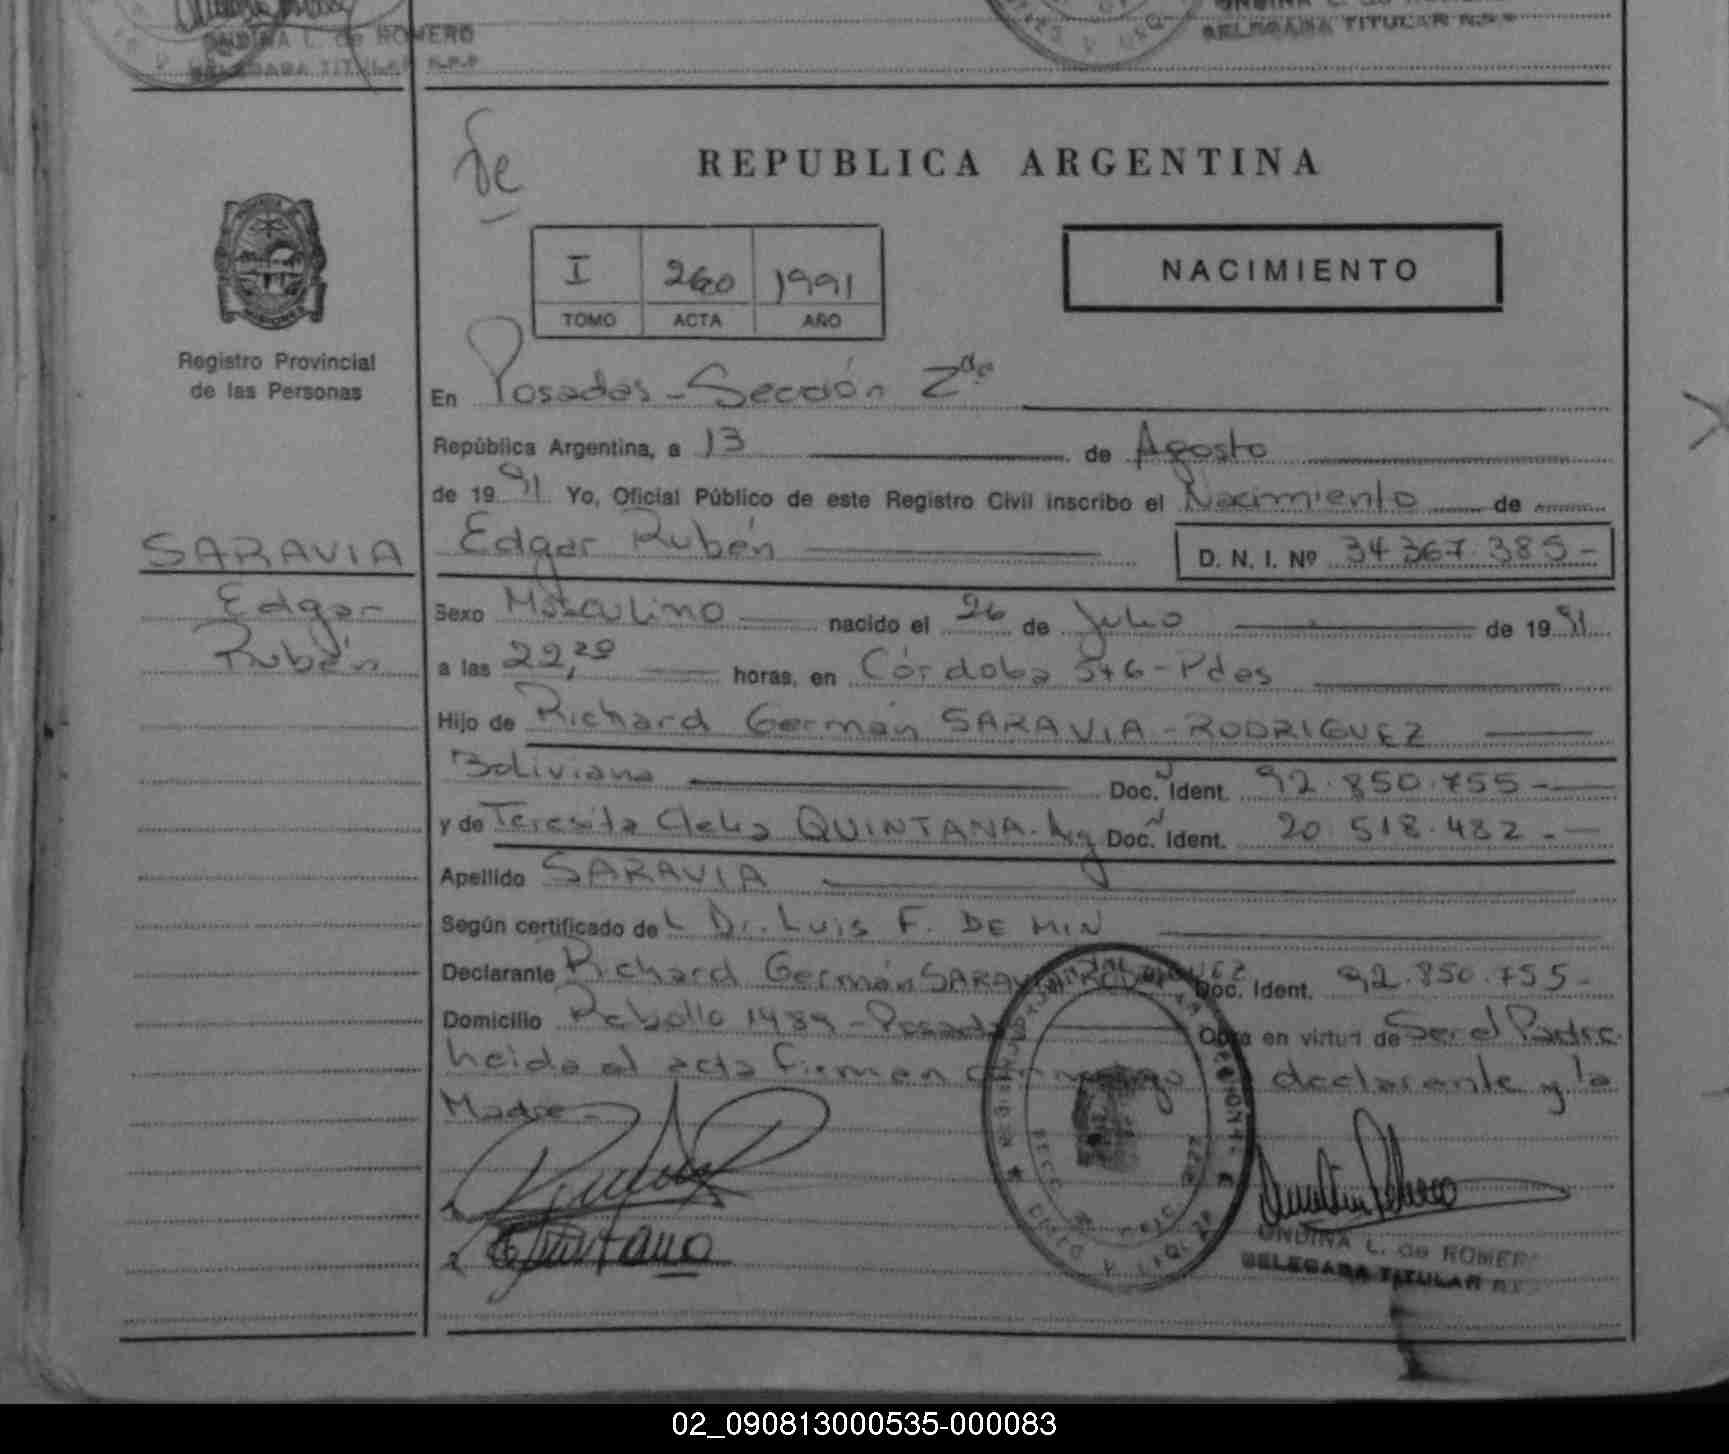 ONDINA L. de ROMERO
DELEGADA TITULAR R.P.P
DELEGADA TITULAR R.P.P
de
REPUBLICA ARGENTINA
I 260 1991
TOMO ACTA AÑO
NACIMIENTO
Registro Provincial
de las Personas
En Posadas - Sección 2da
República Argentina, a 13 de Agosto
de 1991 Yo, Oficial Público de este Registro Civil inscribo el Nacimiento de
SARAVIA
Edgar
Rubén
Edgar Rubén D. N. I. Nº 34.367.385-
Sexo Masculino nacido el 26 de Julio de 1991
a las 22,20 horas, en Córdoba - Pdas
Hijo de Richard Germán SARAVIA - RODRIGUEZ
Boliviana Doc. Ident. 92.850.755-
y de Teresita Clelia QUINTANA. Arg Doc. Ident. 20.518.432-
Apellido SARAVIA
Según certificado del Dr. Luis F. DE MIN
Declarante Richard Germán SARAVIA RODRIGUEZ Doc. Ident. 92.850.755-
Domicilio Rebollo 1489 - Posadas Obra en virtud de Ser el Padre
leida el acta firman conmigo declarante y la
Madre-
Quintana
ONDINA L. de ROMER
DELEGADA TITULAR R.
02_090813000535-000083